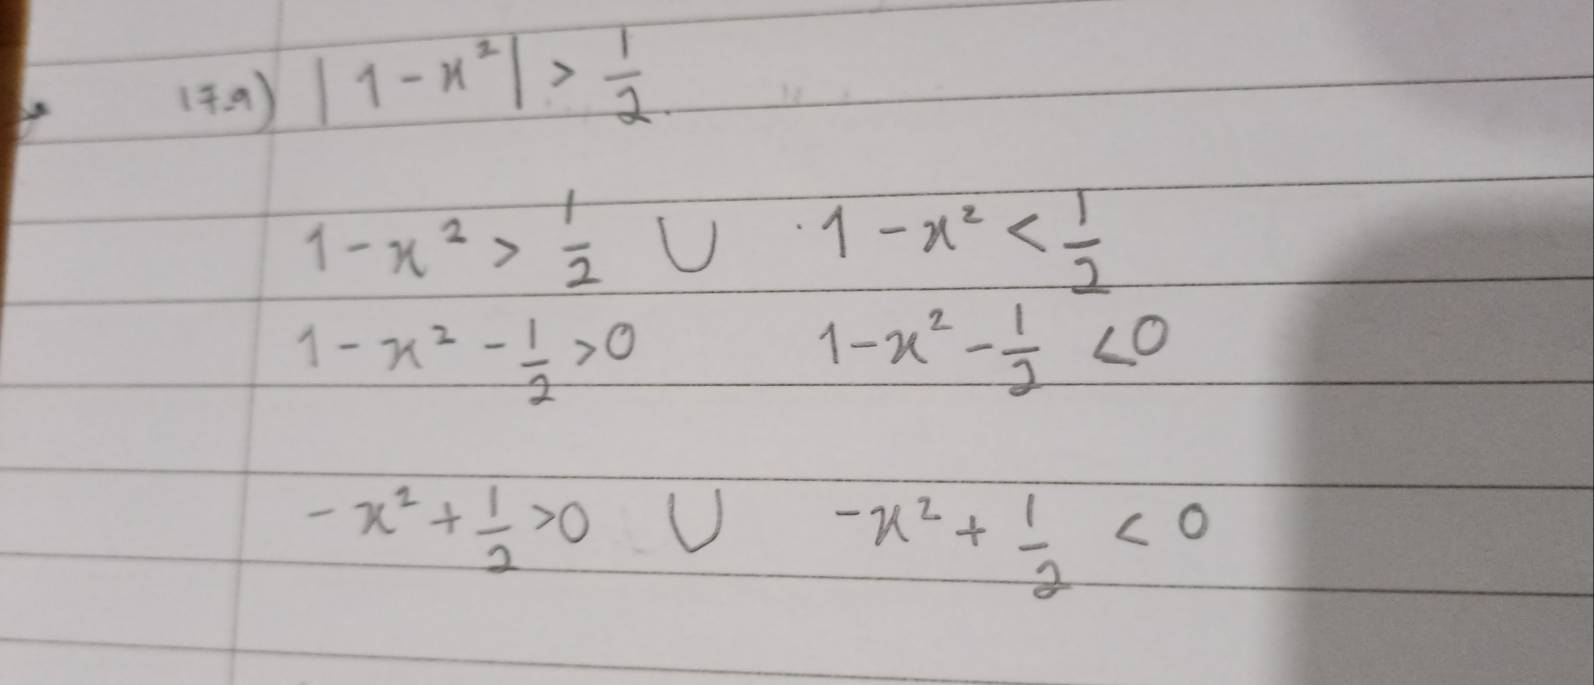 17.9) |1-x²| > 1/2.
1-x² > 1/2 ∪ 1-x² < 1/2
1-x² - 1/2 >0 1-x² - 1/2 <0
-x² + 1/2 >0 ∪ -x² + 1/2 < 0